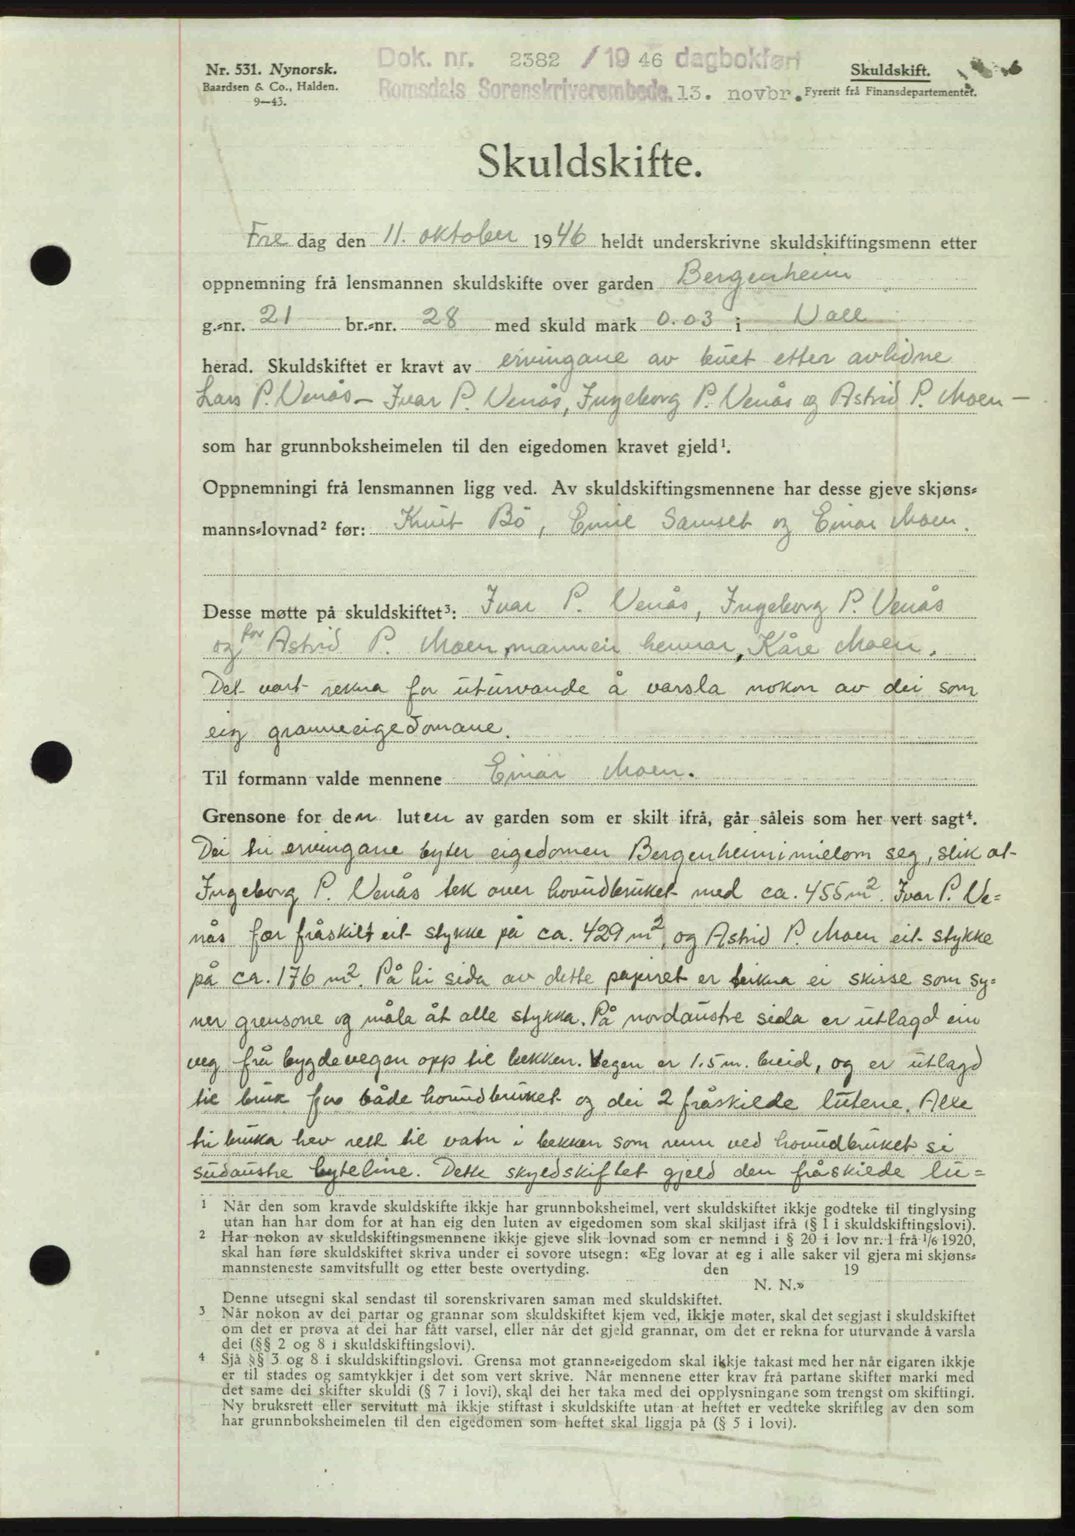 Nr. 531. Nynorsk.
Baardsen & Co., Halden.
9—43.
Dok. nr. 2382 / 19 46 dagbokført
Romsdals Sorenskriverembede. 13. novbr.
Skuldskift.
Fyrerit frå Finansdepartementet.
Skuldskifte.
Fre dag den 11. oktober 1946 heldt underskrivne skuldskiftingsmenn etter
oppnemning frå lensmannen skuldskifte over garden Bergenheim
g.-nr. 21 br.-nr. 28 med skuld mark 0.03 i Voll
herad. Skuldskiftet er kravt av ervingane av buet etter avlidne
Lars P. Venås — Ivar P. Venås, Ingeborg P. Venås og Astrid P. Moen —
som har grunnboksheimelen til den eigedomen kravet gjeld¹.
Oppnemningi frå lensmannen ligg ved. Av skuldskiftingsmennene har desse gjeve skjøns-
manns-lovnad² før: Knut Bö, Emil Samset og Einar Moen.
Desse møtte på skuldskiftet³: Ivar P. Venås, Ingeborg P. Venås
og for Astrid P. Moen, mannen hennar, Kåre Moen.
Det vart rekna for uturvande å varsla nokon av dei som
eig granneeigedomane.
Til formann valde mennene Einar Moen.
Grensone for den luten av garden som er skilt ifrå, går såleis som her vert sagt⁴.
Dei tri ervingane byter eigedomen Bergenheim imielom seg, slik at
Ingeborg P. Venås tek over hovudbruket med ca. 455 m². Ivar P. Ve=
nås fær fråskilt eit stykke på ca. 429 m², og Astrid P. Moen eit stykke
på ca. 176 m². På hi sida av dette papiret er teikna ei skisse som sy=
ner grensone og måla åt alle stykka. På nordaustre sida er utlagd ein
veg frå bygdevegen opp til bekken. Vegen er 1.5 m. breid, og er utlagd
til bruk for både hovudbruket og dei 2 fråskilde lutene. Alle
tri bruka hev rett til vatn i bekken som renn ved hovudbruket si
sudaustre byteline. Dette skyldskiftet gjeld den fråskilde lu=
¹ Når den som kravde skuldskifte ikkje har grunnboksheimel, vert skuldskiftet ikkje godteke til tinglysing
utan han har dom for at han eig den luten av eigedomen som skal skiljast ifrå (§ 1 i skuldskiftingslovi).
² Har nokon av skuldskiftingsmennene ikkje gjeve slik lovnad som er nemnd i § 20 i lov nr. 1 frå 1/6 1920,
skal han føre skuldskiftet skriva under ei sovore utsegn: «Eg lovar at eg i alle saker vil gjera mi skjøns-
mannsteneste samvitsfullt og etter beste overtyding. den 19
N. N.»
Denne utsegni skal sendast til sorenskrivaren saman med skuldskiftet.
³ Når nokon av dei partar og grannar som skuldskiftet kjem ved, ikkje møter, skal det segjast i skuldskiftet
om det er prøva at dei har fått varsel, eller når det gjeld grannar, om det er rekna for uturvande å varsla
dei (§§ 2 og 8 i skuldskiftingslovi).
⁴ Sjå §§ 3 og 8 i skuldskiftingslovi. Grensa mot granne-eigedom skal ikkje takast med her når eigaren ikkje
er til stades og samtykkjer i det som vert skrive. Når mennene etter krav frå partane skifter marki med
det same dei skifter skuldi (§ 7 i lovi), skal dei her taka med dei opplysningane som trengst om skiftingi.
Ny bruksrett eller servitutt må ikkje stiftast i skuldskifte utan at heftet er vedteke skriftleg av den som
har grunnboksheimelen til den eigedomen som heftet skal liggja på (§ 5 i lovi).